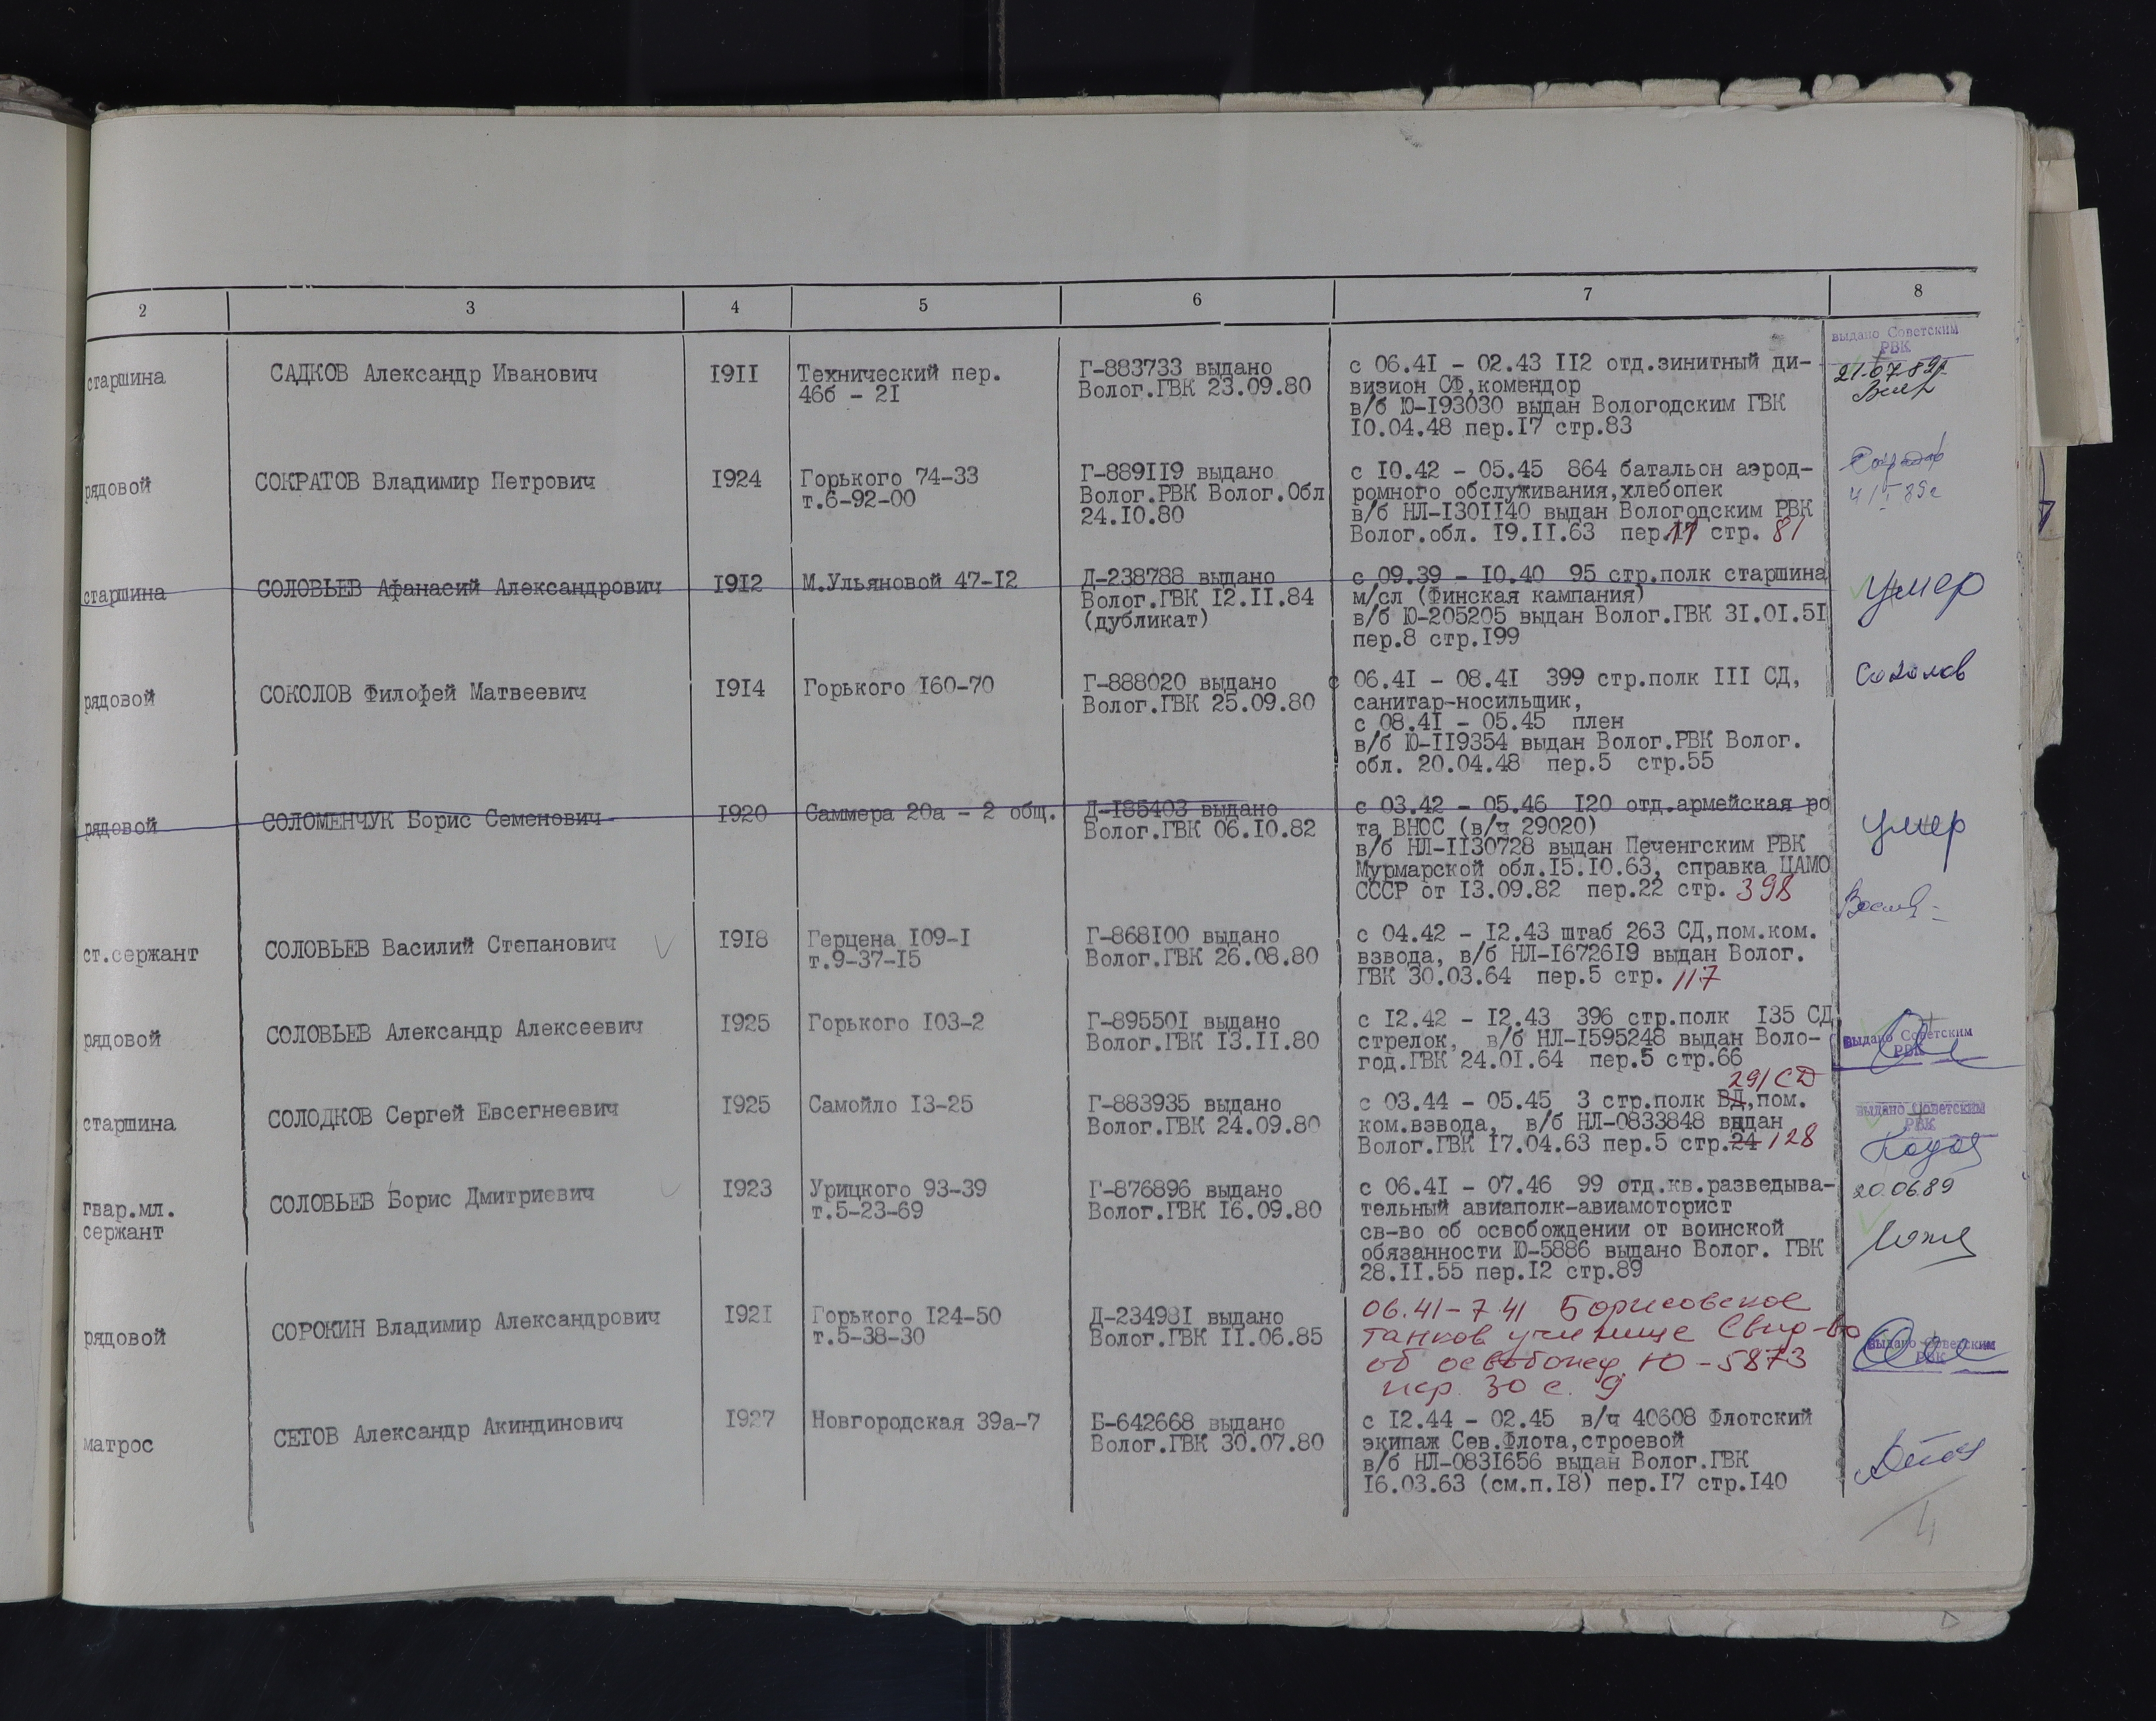 2 3 4 5 6 7 8
старшина САДКОВ Александр Иванович 1911 Технический пер. Г-883733 выдано с 06.41 - 02.43 112 отд.зинитный ди- выдано Советским
46б - 21 Волог.ГВК 23.09.80 визион СФ,комендор РВК
в/б Ю-193030 выдан Вологодским ГВК 21.07.89
10.04.48 пер.17 стр.83
рядовой СОКРАТОВ Владимир Петрович 1924 Горького 74-33 Г-889119 выдано с 10.42 - 05.45 864 батальон аэрод-
т.6-92-00 Волог.РВК Волог.Обл ромного обслуживания,хлебопек
24.10.80 в/б НЛ-1301140 выдан Вологодским РВК
Волог.обл. 19.11.63 пер.17 стр. 81
старшина СОЛОВЬЕВ Афанасий Александрович 1912 М.Ульяновой 47-12 Д-238788 выдано с 09.39 - 10.40 95 стр.полк старшина умер
Волог.ГВК 12.11.84 м/сл (Финская кампания)
(дубликат) в/б Ю-205205 выдан Волог.ГВК 31.01.51
пер.8 стр.199
рядовой СОКОЛОВ Филофей Матвеевич 1914 Горького 160-70 Г-888020 выдано с 06.41 - 08.41 399 стр.полк 111 СД, Соколов
Волог.ГВК 25.09.80 санитар-носильщик,
с 08.41 - 05.45 плен
в/б Ю-119354 выдан Волог.РВК Волог.
обл. 20.04.48 пер.5 стр.55
рядовой СОЛОМЕНЧУК Борис Семенович 1920 Саммера 20а - 2 общ. Д-185403 выдано с 03.42 - 05.46 120 отд.армейская ро умер
Волог.ГВК 06.10.82 та ВНОС (в/ч 29020)
в/б НЛ-1130728 выдан Печенгским РВК
Мурмарской обл.15.10.63, справка ЦАМО
СССР от 13.09.82 пер.22 стр. 398
ст.сержант СОЛОВЬЕВ Василий Степанович 1918 Герцена 109-1 Г-868100 выдано с 04.42 - 12.43 штаб 263 СД,пом.ком.
т.9-37-15 Волог.ГВК 26.08.80 взвода, в/б НЛ-1672619 выдан Волог.
ГВК 30.03.64 пер.5 стр. 117
рядовой СОЛОВЬЕВ Александр Алексеевич 1925 Горького 103-2 Г-895501 выдано с 12.42 - 12.43 396 стр.полк 135 СД выдано Советским
Волог.ГВК 13.11.80 стрелок, в/б НЛ-1595248 выдан Воло- РВК
год.ГВК 24.01.64 пер.5 стр.66
291 СД
старшина СОЛОДКОВ Сергей Евсегнеевич 1925 Самойло 13-25 Г-883935 выдано с 03.44 - 05.45 3 стр.полк ВД,пом. выдано Советским
Волог.ГВК 24.09.80 ком.взвода, в/б НЛ-0833848 выдан РВК
Волог.ГВК 17.04.63 пер.5 стр.24 128
гвар.мл. СОЛОВЬЕВ Борис Дмитриевич 1923 Урицкого 93-39 Г-876896 выдано с 06.41 - 07.46 99 отд.кв.разведыва- 20.06.89
сержант т.5-23-69 Волог.ГВК 16.09.80 тельный авиаполк-авиамоторист
св-во об освобождении от воинской
обязанности Ю-5886 выдано Волог. ГВК
28.11.55 пер.12 стр.89
рядовой СОРОКИН Владимир Александрович 1921 Горького 124-50 Д-234981 выдано 06.41-7.41 Борисовское
т.5-38-30 Волог.ГВК 11.06.85 танков училище Свид-во выдано Советским
об освобожд Ю-5873 РВК
пер. 30 с. 9
матрос СЕТОВ Александр Акиндинович 1927 Новгородская 39а-7 Б-642668 выдано с 12.44 - 02.45 в/ч 40608 Флотский
Волог.ГВК 30.07.80 экипаж Сев.Флота,строевой
в/б НЛ-0831656 выдан Волог.ГВК
16.03.63 (см.п.18) пер.17 стр.140
4